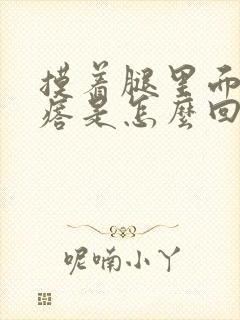 摸着腿里而
痞是怎麼回
呢喃小丫